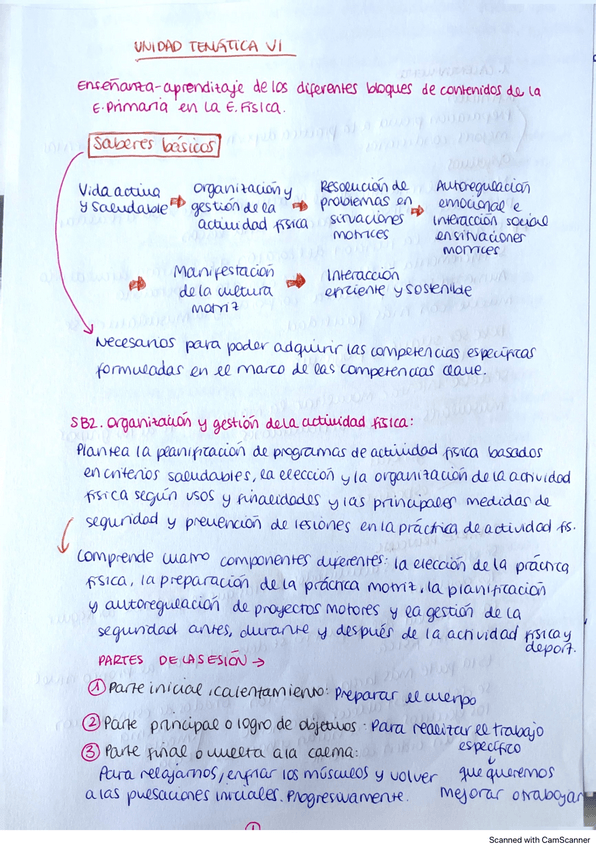 UNIDAD TEMÁTICA VI
Enseñanza-aprendizaje de los diferentes bloques de contenidos de la
E.Primaria en la E.Física.
Saberes básicos
Vida activa y saludable → Organización y gestión de la actividad física → Resolución de problemas en situaciones motrices → Autoregulación emocional e interacción social en situaciones motrices
→ Manifestación de la cultura motriz → Interacción eficiente y sostenible
Necesarios para poder adquirir las competencias específicas
formuladas en el marco de las competencias clave.
SB2. Organización y gestión de la actividad física:
Plantea la planificación de programas de actividad física basados
en criterios saludables, la elección y la organización de la actividad
física según usos y finalidades y las principales medidas de
seguridad y prevención de lesiones en la práctica de actividad fís.
Comprende cuatro componentes diferentes: la elección de la práctica
física, la preparación de la práctica motriz, la planificación
y autoregulación de proyectos motores y la gestión de la
seguridad antes, durante y después de la actividad física y
deport.
PARTES DE LA SESIÓN →
① Parte inicial /calentamiento: Preparar el cuerpo
② Parte principal o logro de objetivos: Para realizar el trabajo
específico
que queremos
mejorar o trabajar
③ Parte final o vuelta a la calma:
Para relajarnos, enfriar los músculos y volver
a las pulsaciones iniciales. Progresivamente.
Scanned with CamScanner